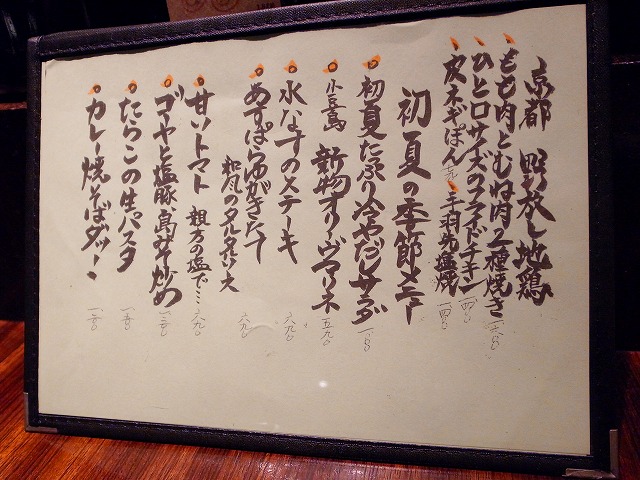 京都 野放し地鶏
もも肉とむね肉2種焼き
ひと口サイズのフライドチキン 一四〇〇
皮ネギぽん 手羽先塩焼 一四〇〇
初夏の季節メニュー
初夏たっぷり冷やだしサラダ
小豆島 新物オリーヴマリネ 五九〇
水なすのステーキ 六九〇
あすぱらゆがきたて
和風のタルタルソース 六九〇
甘いトマト 親方の塩で… 六九〇
ゴーヤと塩豚 島みそ炒め
たらこの生パスタ
カレー焼そばダッー